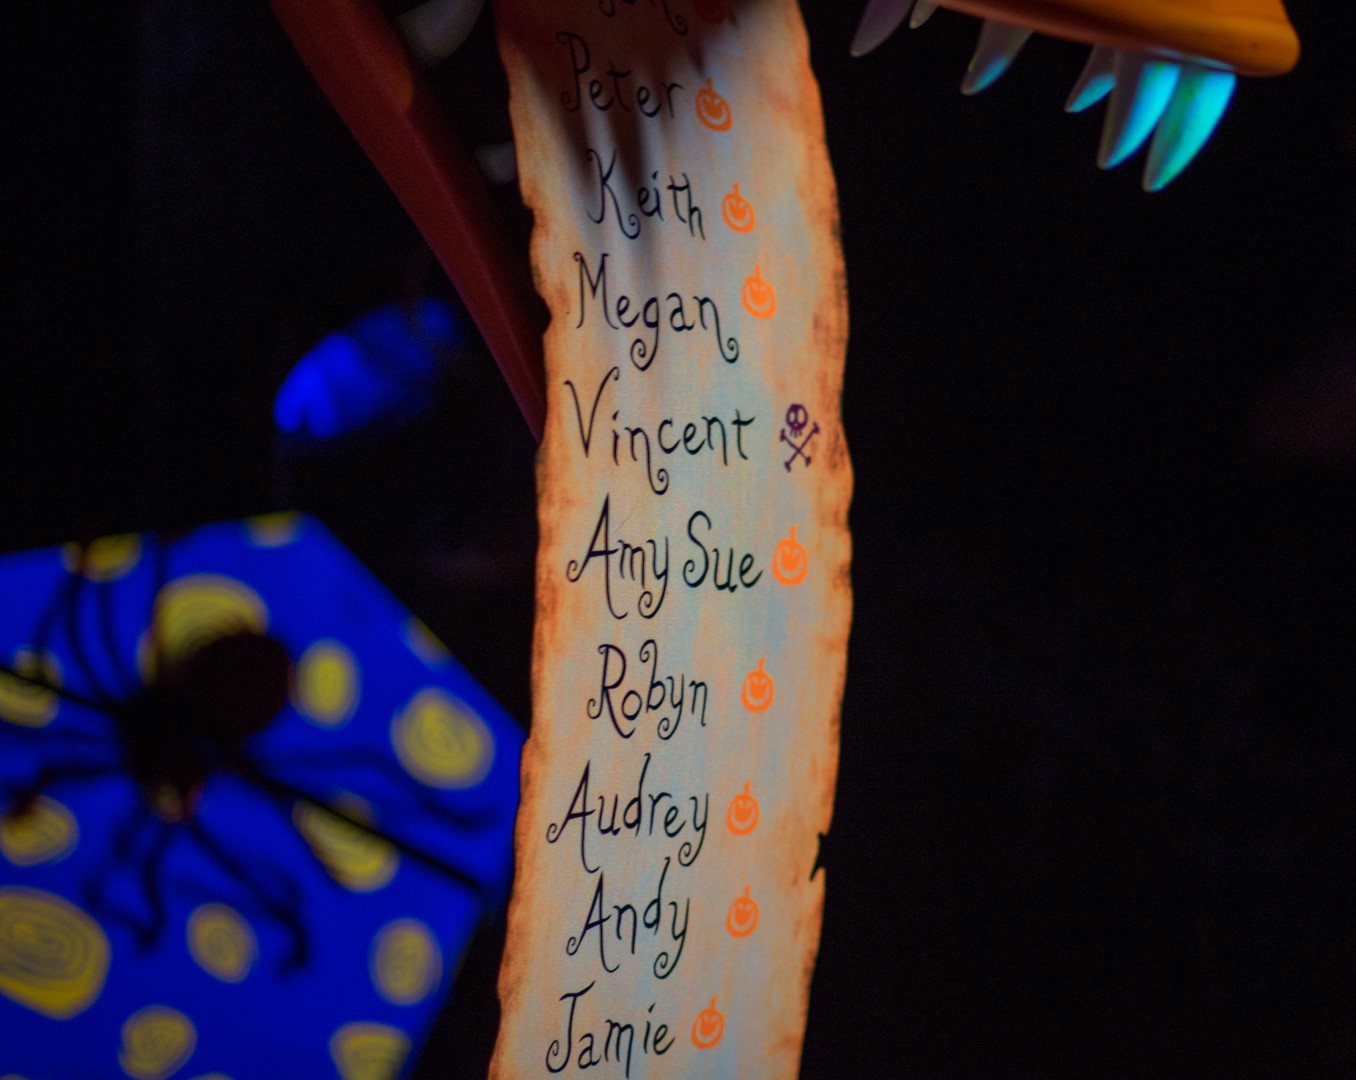 Peter
Keith
Megan
Vincent
Amy Sue
Robyn
Audrey
Andy
Jamie